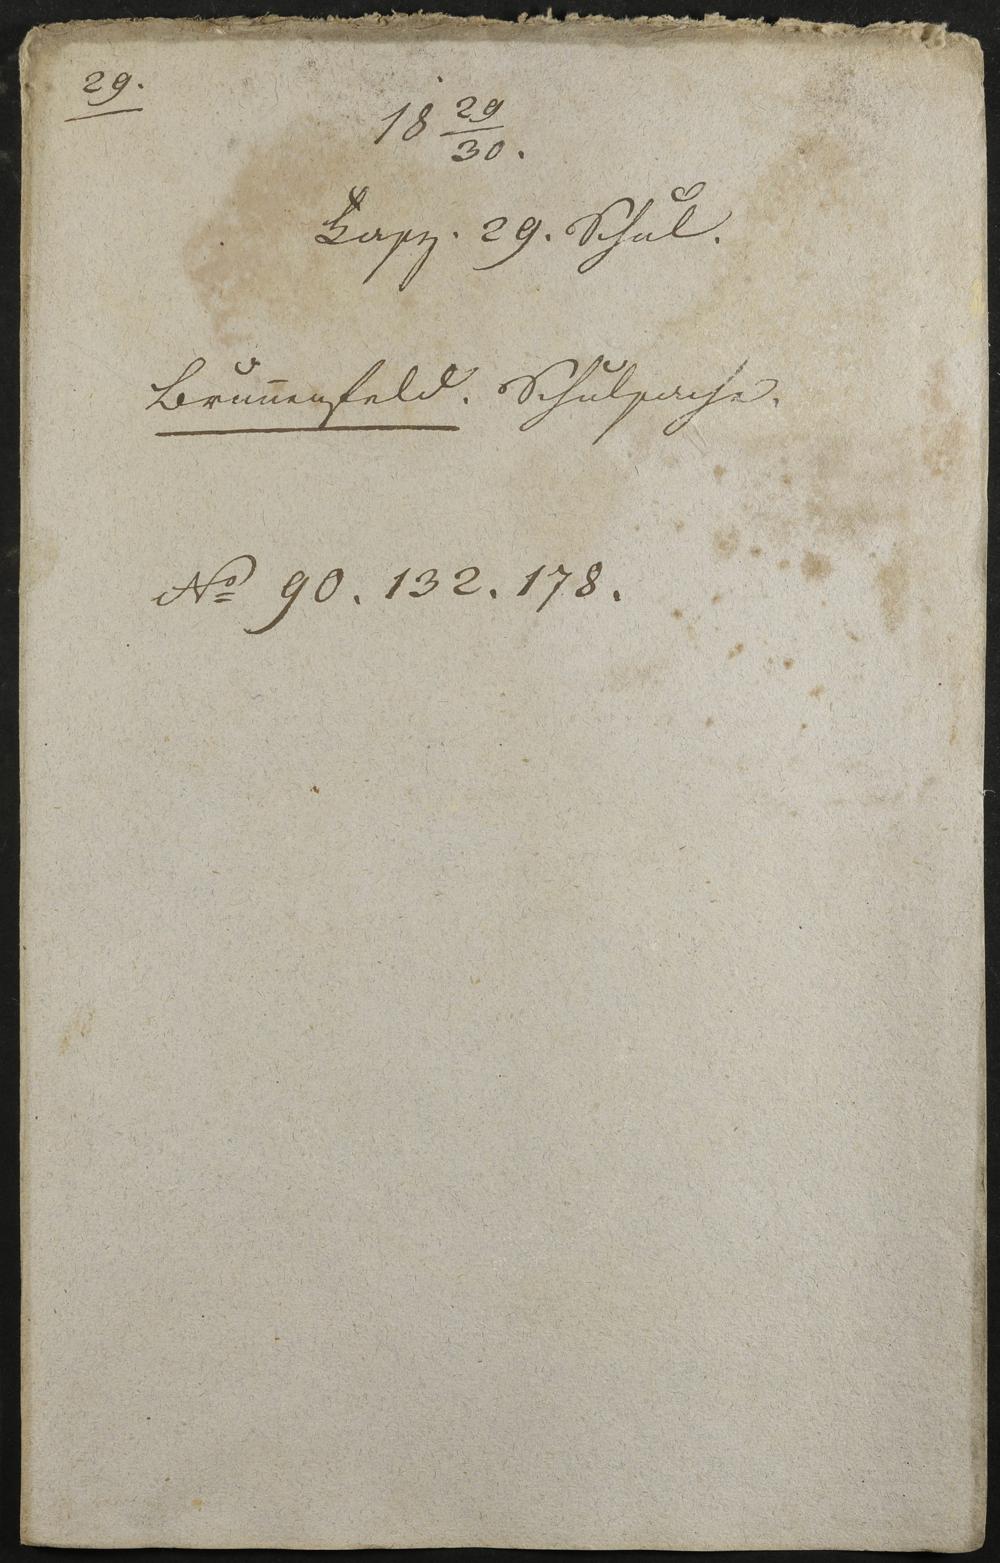 29.
18 29/30.
Kapz. 29. Schul.
Brunnenfeld. Schulsache.
No 90. 132. 178.